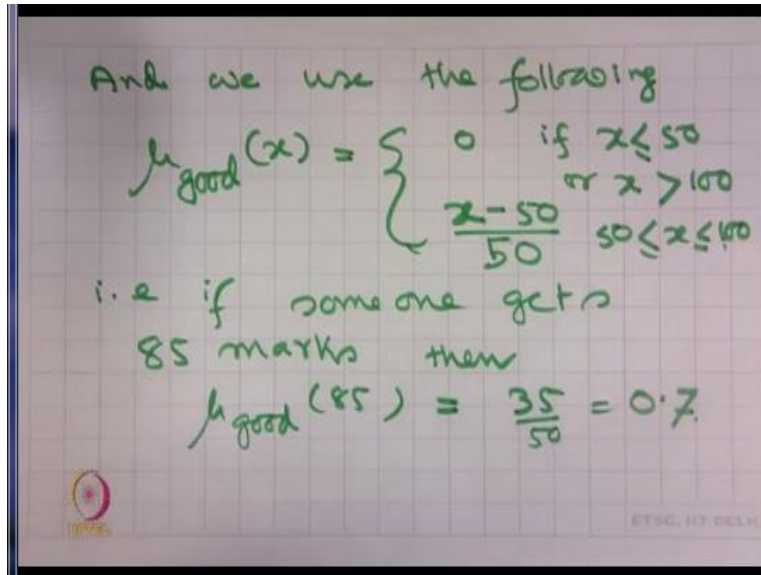 And we use the following
μgood(x) = { 0 if x ≤ 50
or x > 100
x - 50 / 50 50 ≤ x ≤ 100
i.e if someone gets
85 marks then
μgood(85) = 35/50 = 0.7
NPTEL
ETSC, IIT DELHI